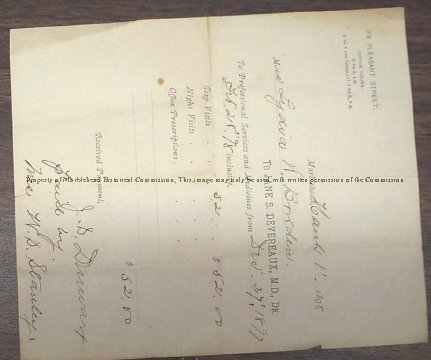 78 PLEASANT STREET.
OFFICE HOURS:
Marblehead, March 1st 1898
Mrs Lydia N. Borden.
To JANE S. DEVEREAUX, M.D., DR
To Professional Services and Medicines from Dec. 27, 1897
to Feb. 28, '98 inclusive.
Day Visits . . 52 . . $ 52.00
Night Visits . . . .
Office Prescriptions . . . .
$ 52.00
Received Payment,
Paid by
Mrs. W. D. Stanley.
Property of Marblehead Historical Commission. This image may only be used with written permission of the Commission.